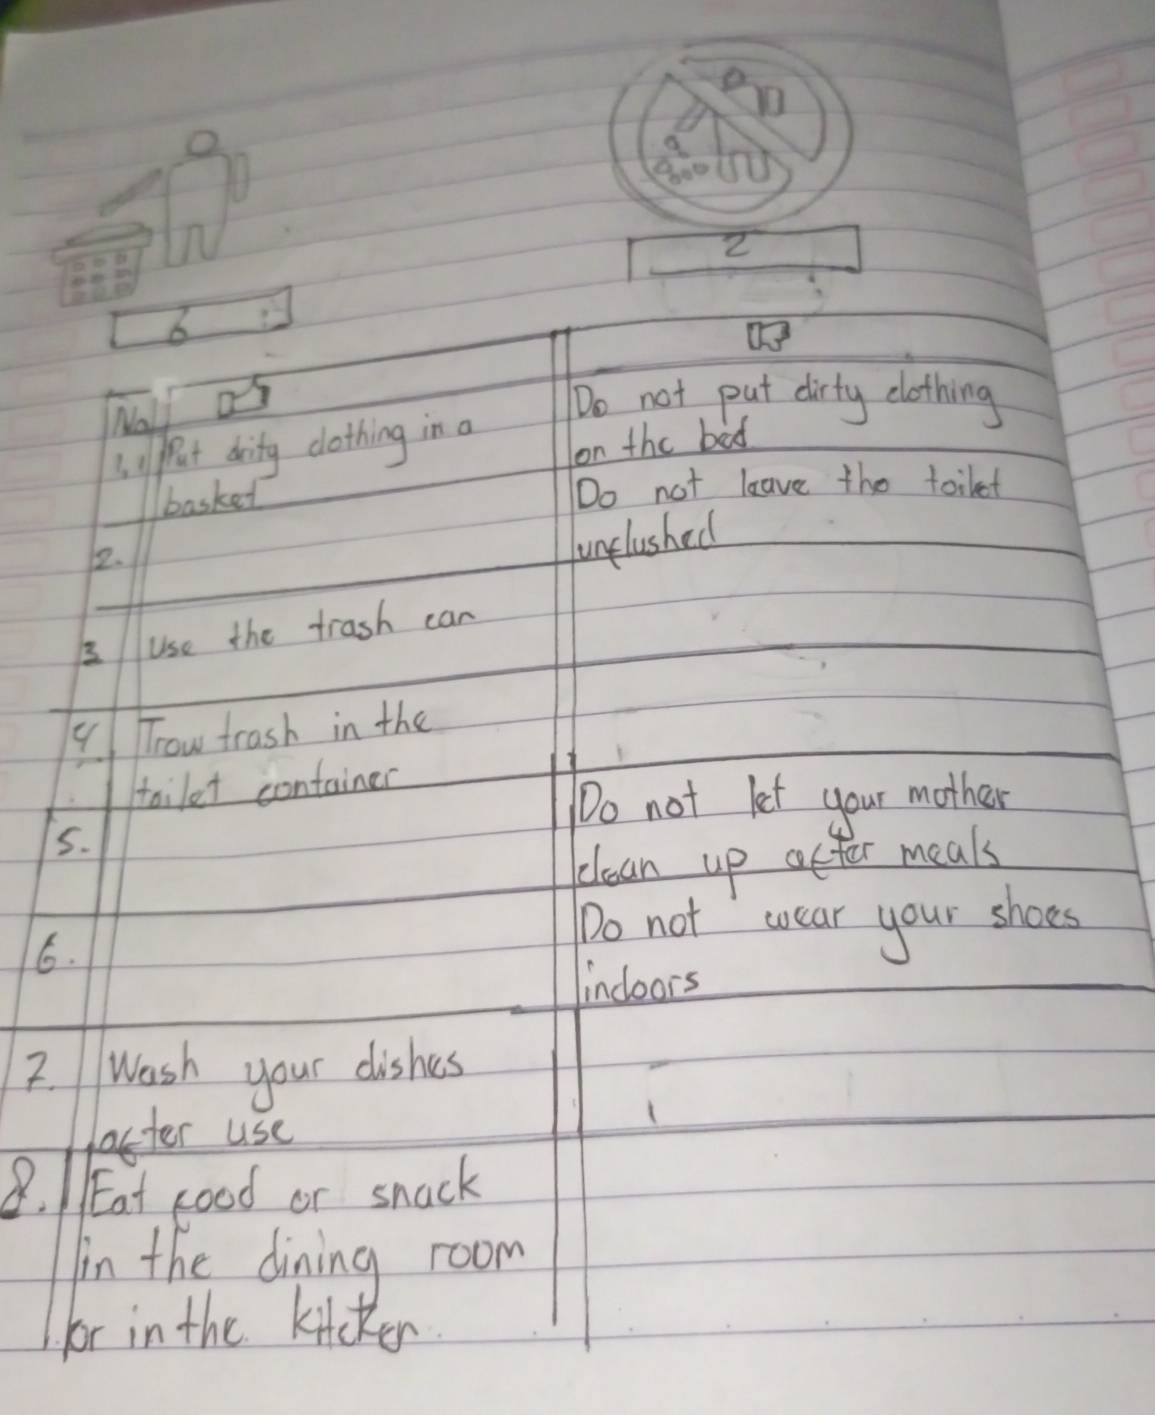 2
6
No
Do not put dirty clothing
on the bed
1. Put drity clothing in a
basket
Do not leave the toilet
unflushed
2.
3 Use the trash can
4. Trow trash in the
toilet container
5.
Do not let your mother
clean up after meals
6.
Do not wear your shoes
indoors
7. Wash your dishes
after use
8. Eat food or snack
in the dining room
or in the kitcken.